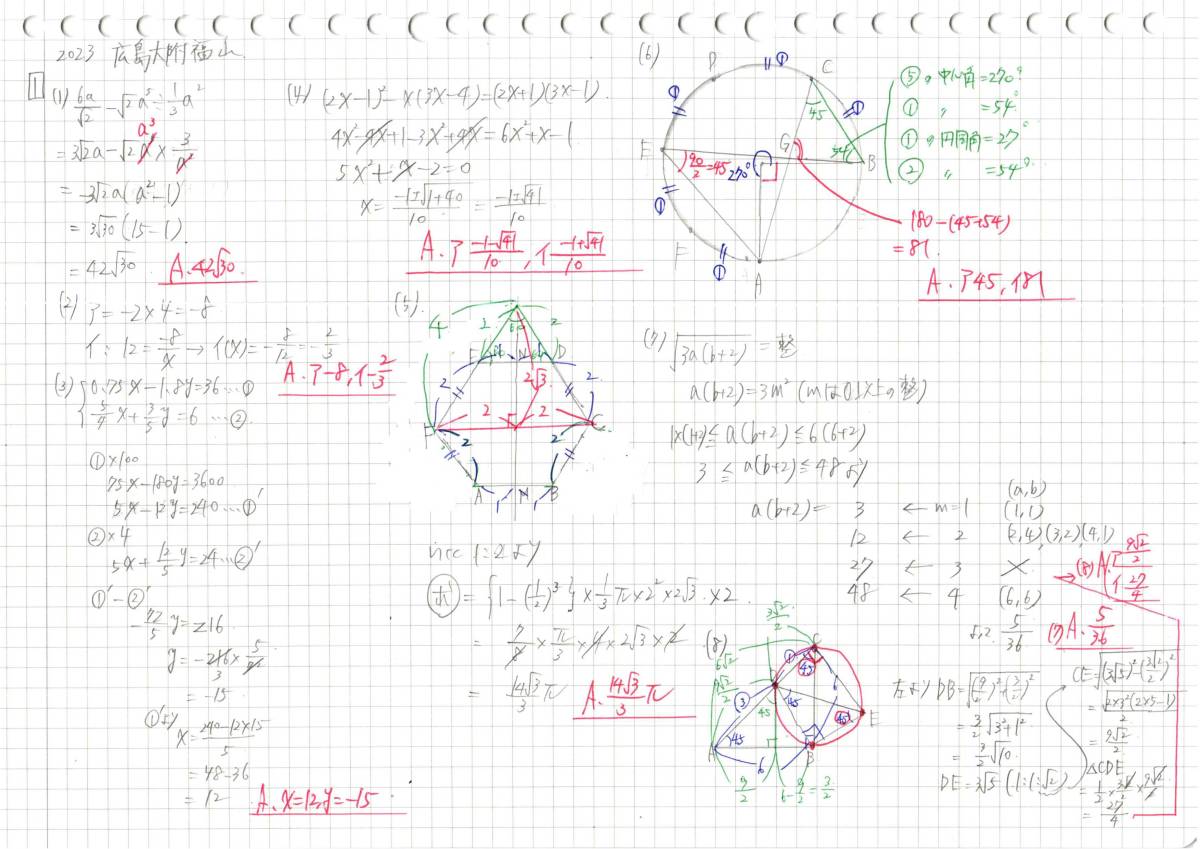 2023 広島大附福山
1
(1) 6a/√2 - √2a⁵ ÷ 1/3 a²
a³
= 3√2a - √2a⁵ × 3/a²
= -3√2a(a²-1)
= 3√30(15-1)
= 42√30
A. 42√30
(2) ア = -2×4 = -8
イ: 12 = -8/x → イ(x) = -8/12 = -2/3
A. ア-8, イ-2/3
(3) { 0.75x - 1.8y = 36 … ①
5/4 x + 3/5 y = 6 … ②
①×100
75x - 180y = 3600
5x - 12y = 240 … ①'
②×4
5x + 12/5 y = 24 … ②'
①' - ②'
-72/5 y = 216
y = -216 × 5/72
3
= -15
①'より
x = (240-12×15)/5
= 48-36
= 12
A. x=12, y=-15
(4) (2x-1)² - x(3x-4) = (2x+1)(3x-1)
4x²-4x+1-3x²+4x = 6x²+x-1
5x²+x-2=0
x = (-1±√(1+40))/10 = (-1±√41)/10
A. ア (-1-√41)/10, イ (-1+√41)/10
(5)
4
2 60 2
E N D
2 2√3 2
F 2 2 C
2 2
A 1 M 1 B
1:2より
㊍ = {1-(1/2)³} × 1/3 π×2²×2√3 ×2
= 7/8 × π/3 × 4 × 2√3 × 2
= 14√3/3 π
A. 14√3/3 π
(6)
D ① C
① ①
45
E G 54 B
90/2=45 270°
①
F ① A
⑤の中心角=270°
① 〃 =54°
①の円周角=27°
② 〃 =54°
180-(45+54)
=81
A. ア45, イ81
(7) √3a(b+2) = 整
a(b+2)=3m² (mは0以上の整)
1×(1+2)≦a(b+2)≦6(6+2)
3≦a(b+2)≦48より
(a,b)
a(b+2)= 3 ← m=1 (1,1)
12 ← 2 (2,4)(3,2)(4,1)
27 ← 3 ×
48 ← 4 (6,6)
よって 5/36
(7) A. 5/36
(8) A. ア 9√2/2
イ 27/4
(8)
3√2/2
C
6√2 ① 45
9√2/2 ③ 45 6 45 E
45
A 45 6 B
9/2 6-9/2=3/2
左より DB=√((9/2)²+(3/2)²)
= 3/2 √(3²+1²)
= 3/2 √10
DE=3√5 (1:1:√2)
CE=√((3√5)²-(3√2/2)²)
= √(2×3²(2×5-1))/2
= 9√2/2
△CDE
= 1/2 × 3√2/2 × 9√2/2
= 27/4